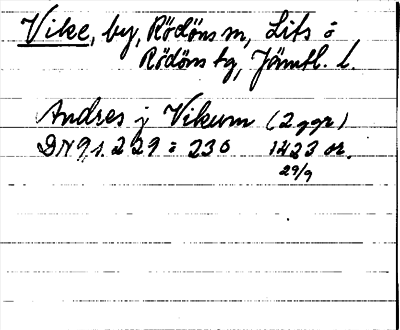 Vike, by, Rödöns sn, Lits o
Rödöns tg, Jämtl. l.
Andres j Vikum (2 ggr)
DN 9, s. 229 o 230 1423 or.
29/9